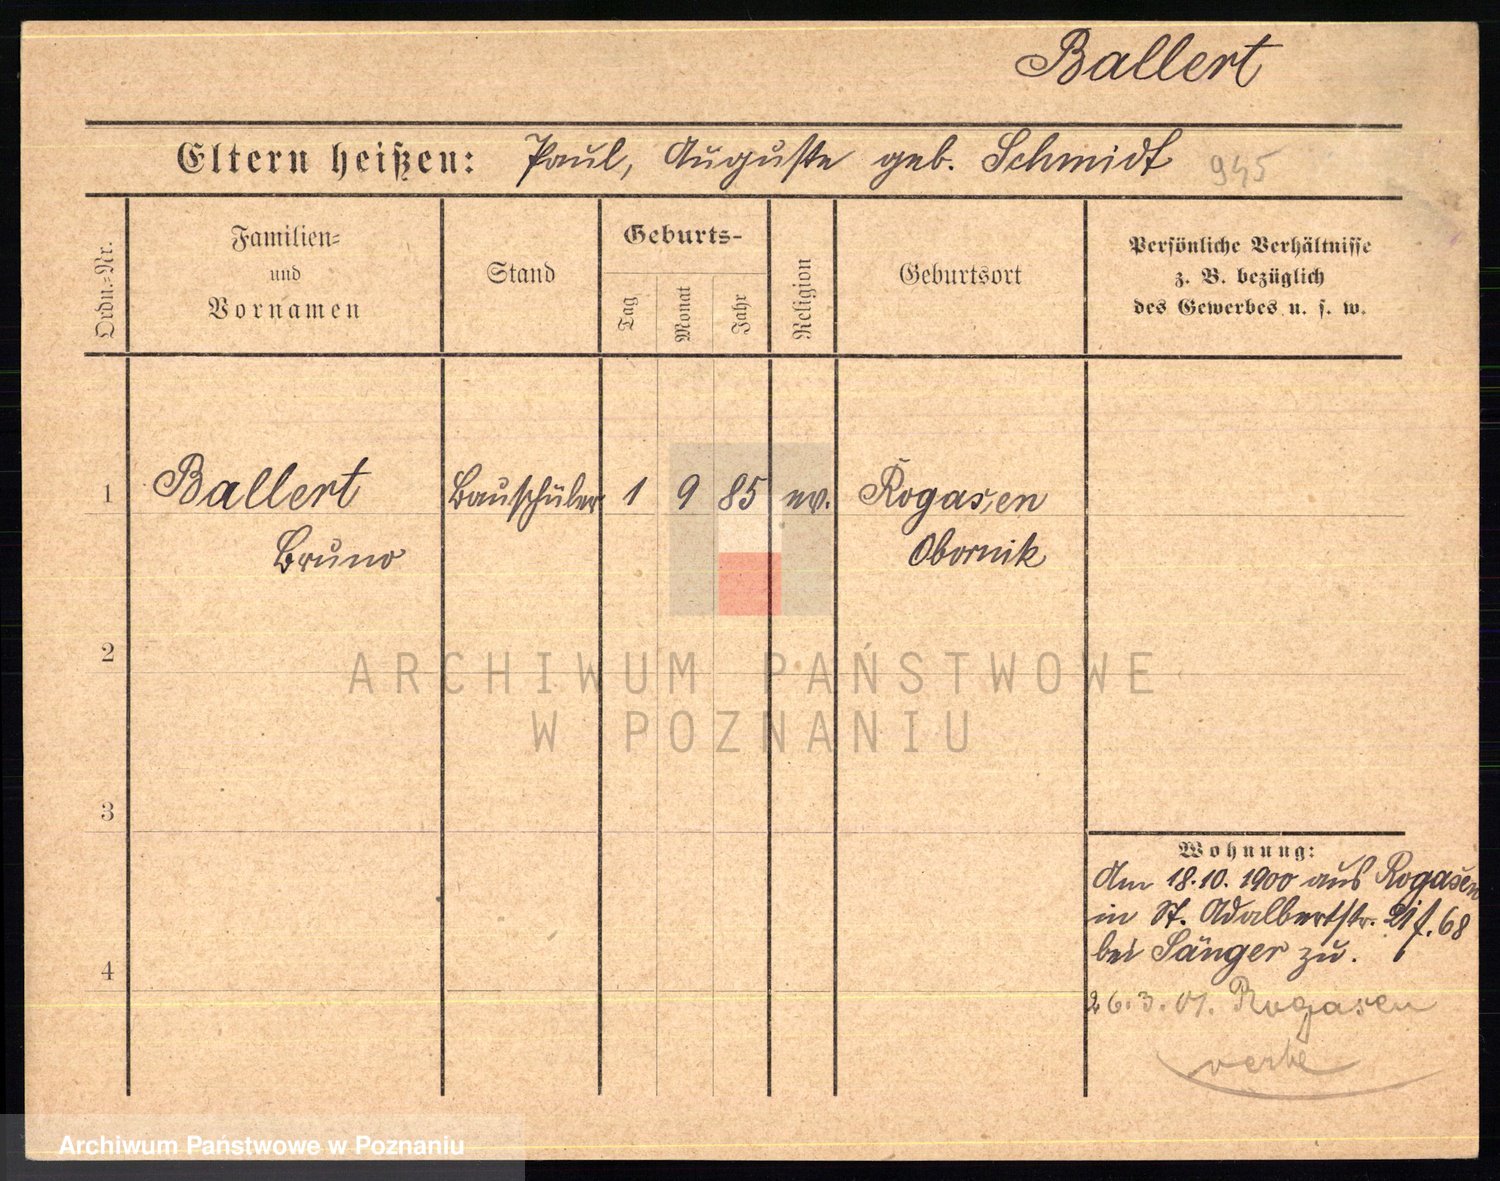 Ballert
Eltern heißen: Paul, Auguste geb. Schmidt 945
Ordn.-Nr.
Familien-
und
Vornamen
Stand
Geburts-
Tag
Monat
Jahr
Religion
Geburtsort
Persönliche Verhältnisse
z. B. bezüglich
des Gewerbes u. s. w.
1 Ballert Bauschüler 1 9 85 ev. Rogasen
Bruno Obornik
2
ARCHIWUM PAŃSTWOWE
W POZNANIU
3
Wohnung:
Am 18.10.1900 aus Rogasen
in St. Adalbertstr. 68
bei Sänger zu.
4
26.3.01. Rogasen
Archiwum Państwowe w Poznaniu